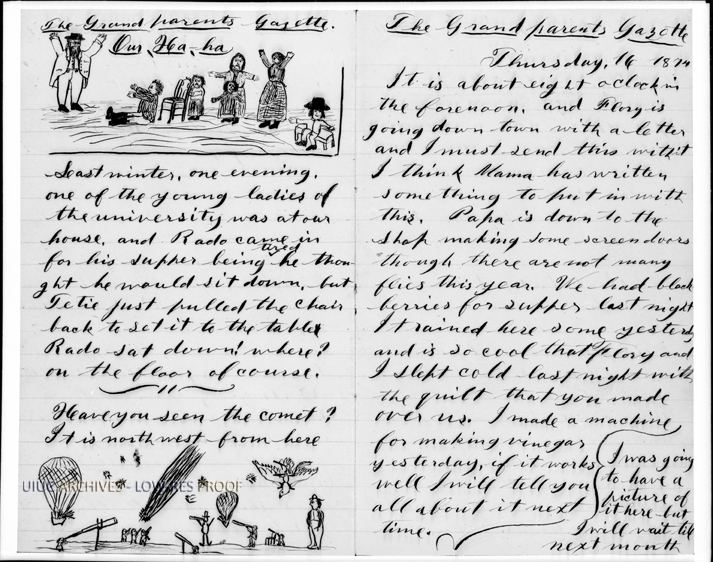 The Grand parents Gazette.
Our Ha-ha
Last winter, one evening,
one of the young ladies of
the university was at our
house, and Rado came in
for his supper being tired he thou-
ght he would sit down, but
Tetie just pulled the chair
back to set it to the table
Rado sat down! where?
on the floor of course.
Have you seen the comet?
It is north west from here
UIUC ARCHIVES - LOW RES PROOF
The Grand parents Gazette
Thursday, 16 1874
It is about eight oclock in
the forenoon, and Flory is
going down town with a letter
and I must send this with it
I think Mama has written
something to put in with
this. Papa is down to the
shop making some screen doors
though there are not many
flies this year. We had black
berries for supper last night
It rained here some yesterd
and is so cool that Flory and
I slept cold last night with
the quilt that you made
over us. I made a machine
for making vinegar
yesterday, if it works
well I will tell you
all about it next
time.
I was going
to have a
picture of
it here but
I will wait till
next month